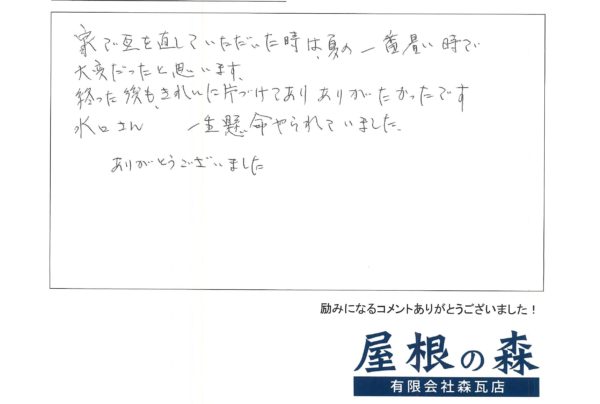 家で瓦を直していただいた時は、夏の一番暑い時で
大変だったと思います。
終った後も、きれいに片づけてありありがたかったです
水口さん　一生懸命やられていました。
ありがとうございました
励みになるコメントありがとうございました！
屋根の森
有限会社森瓦店